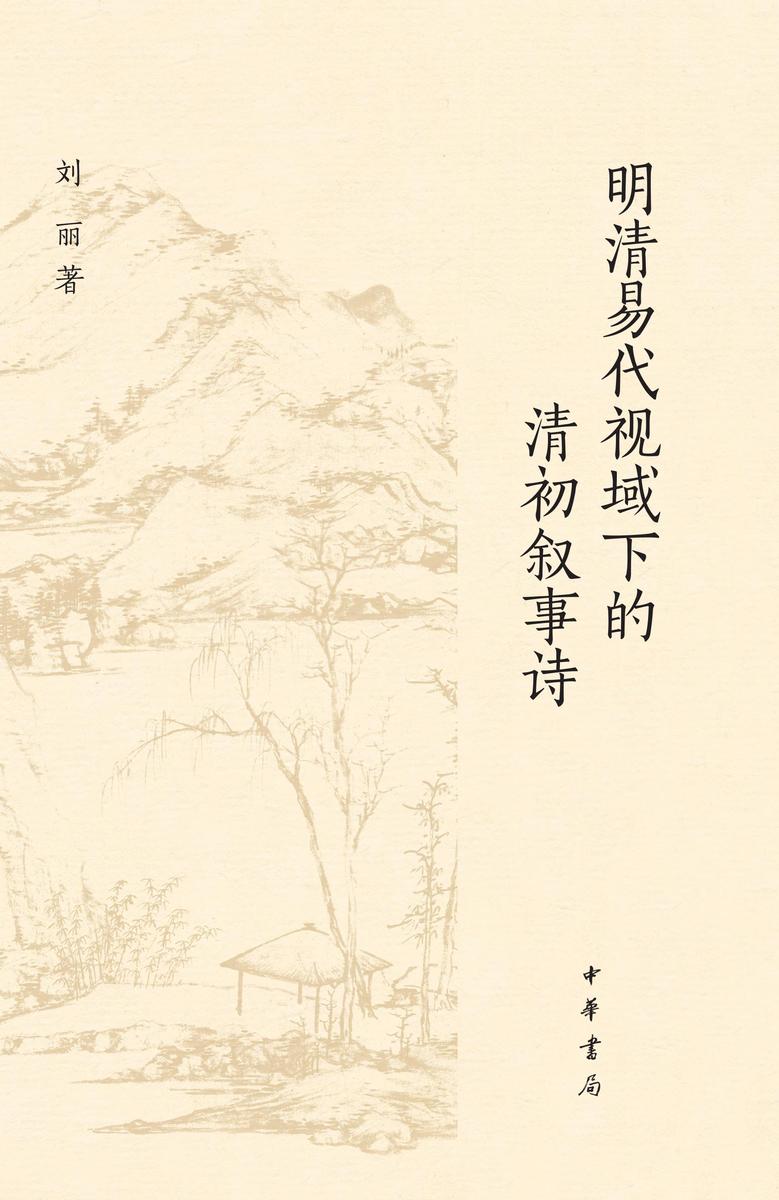 明清易代视域下的
清初叙事诗
刘丽著
中華書局